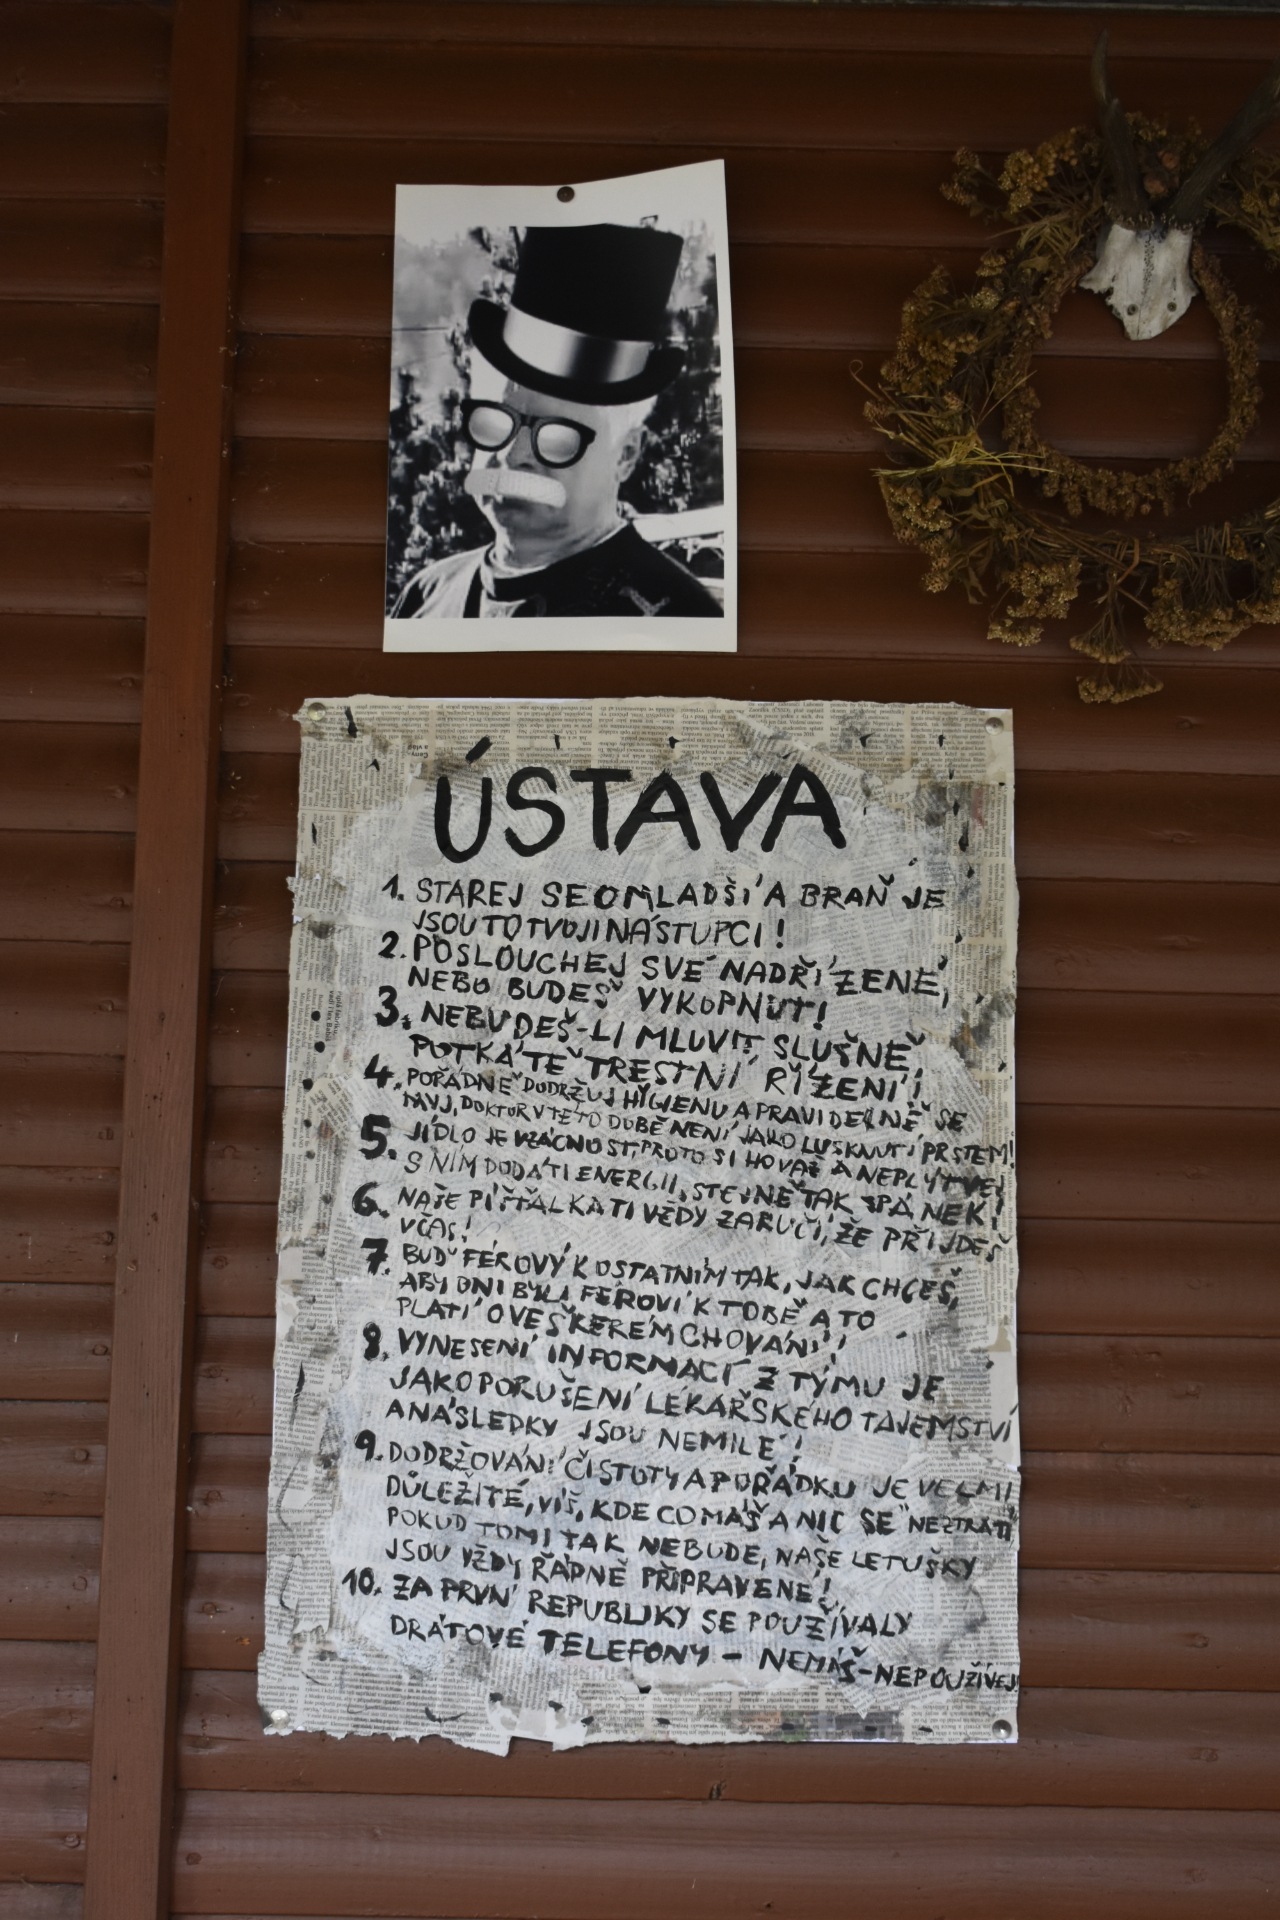 ÚSTAVA
1. STAREJ SE O MLADŠÍ A BRAŇ JE
JSOU TO TVOJI NÁSTUPCI!
2. POSLOUCHEJ SVÉ NADŘÍZENÉ,
NEBO BUDEŠ VYKOPNUT!
3. NEBUDEŠ-LI MLUVIT SLUŠNĚ,
POTKÁ TĚ TRESTNÍ ŘÍZENÍ!
4. POŘÁDNĚ DODRŽUJ HYGIENU A PRAVIDELNĚ SE
MYJ, DOKTOR V TÉTO DOBĚ NENÍ JAKO LUSKNUTÍ PRSTEM!
5. JÍDLO JE VZÁCNOST, PROTO SI HO VAŽ A NEPLÝTVEJ
S NÍM DODÁ TI ENERGII, STEJNĚ TAK SPÁNEK!
6. NAŠE PÍŠŤALKA TI VŽDY ZARUČÍ, ŽE PŘIJDEŠ
VČAS!
7. BUĎ FÉROVÝ K OSTATNÍM TAK, JAK CHCEŠ,
ABY ONI BYLI FÉROVÍ K TOBĚ A TO
PLATÍ O VEŠKERÉM CHOVÁNÍ!
8. VYNESENÍ INFORMACÍ Z TÝMU JE
JAKO PORUŠENÍ LÉKAŘSKÉHO TAJEMSTVÍ
A NÁSLEDKY JSOU NEMILÉ!
9. DODRŽOVÁNÍ ČISTOTY A POŘÁDKU JE VELMI
DŮLEŽITÉ, VÍŠ, KDE CO MÁŠ A NIC SE NEZTRATÍ
POKUD TOMI TAK NEBUDE, NAŠE LETUŠKY
JSOU VŽDY ŘÁDNĚ PŘIPRAVENÉ!
10. ZA PRVNÍ REPUBLIKY SE POUŽÍVALY
DRÁTOVÉ TELEFONY - NEMÁŠ-NEPOUŽÍVEJ!